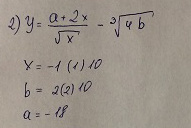 2) y = (a + 2x)/√x - ³√(4b)
x = -1 (1) 10
b = 2(2) 10
a = -18